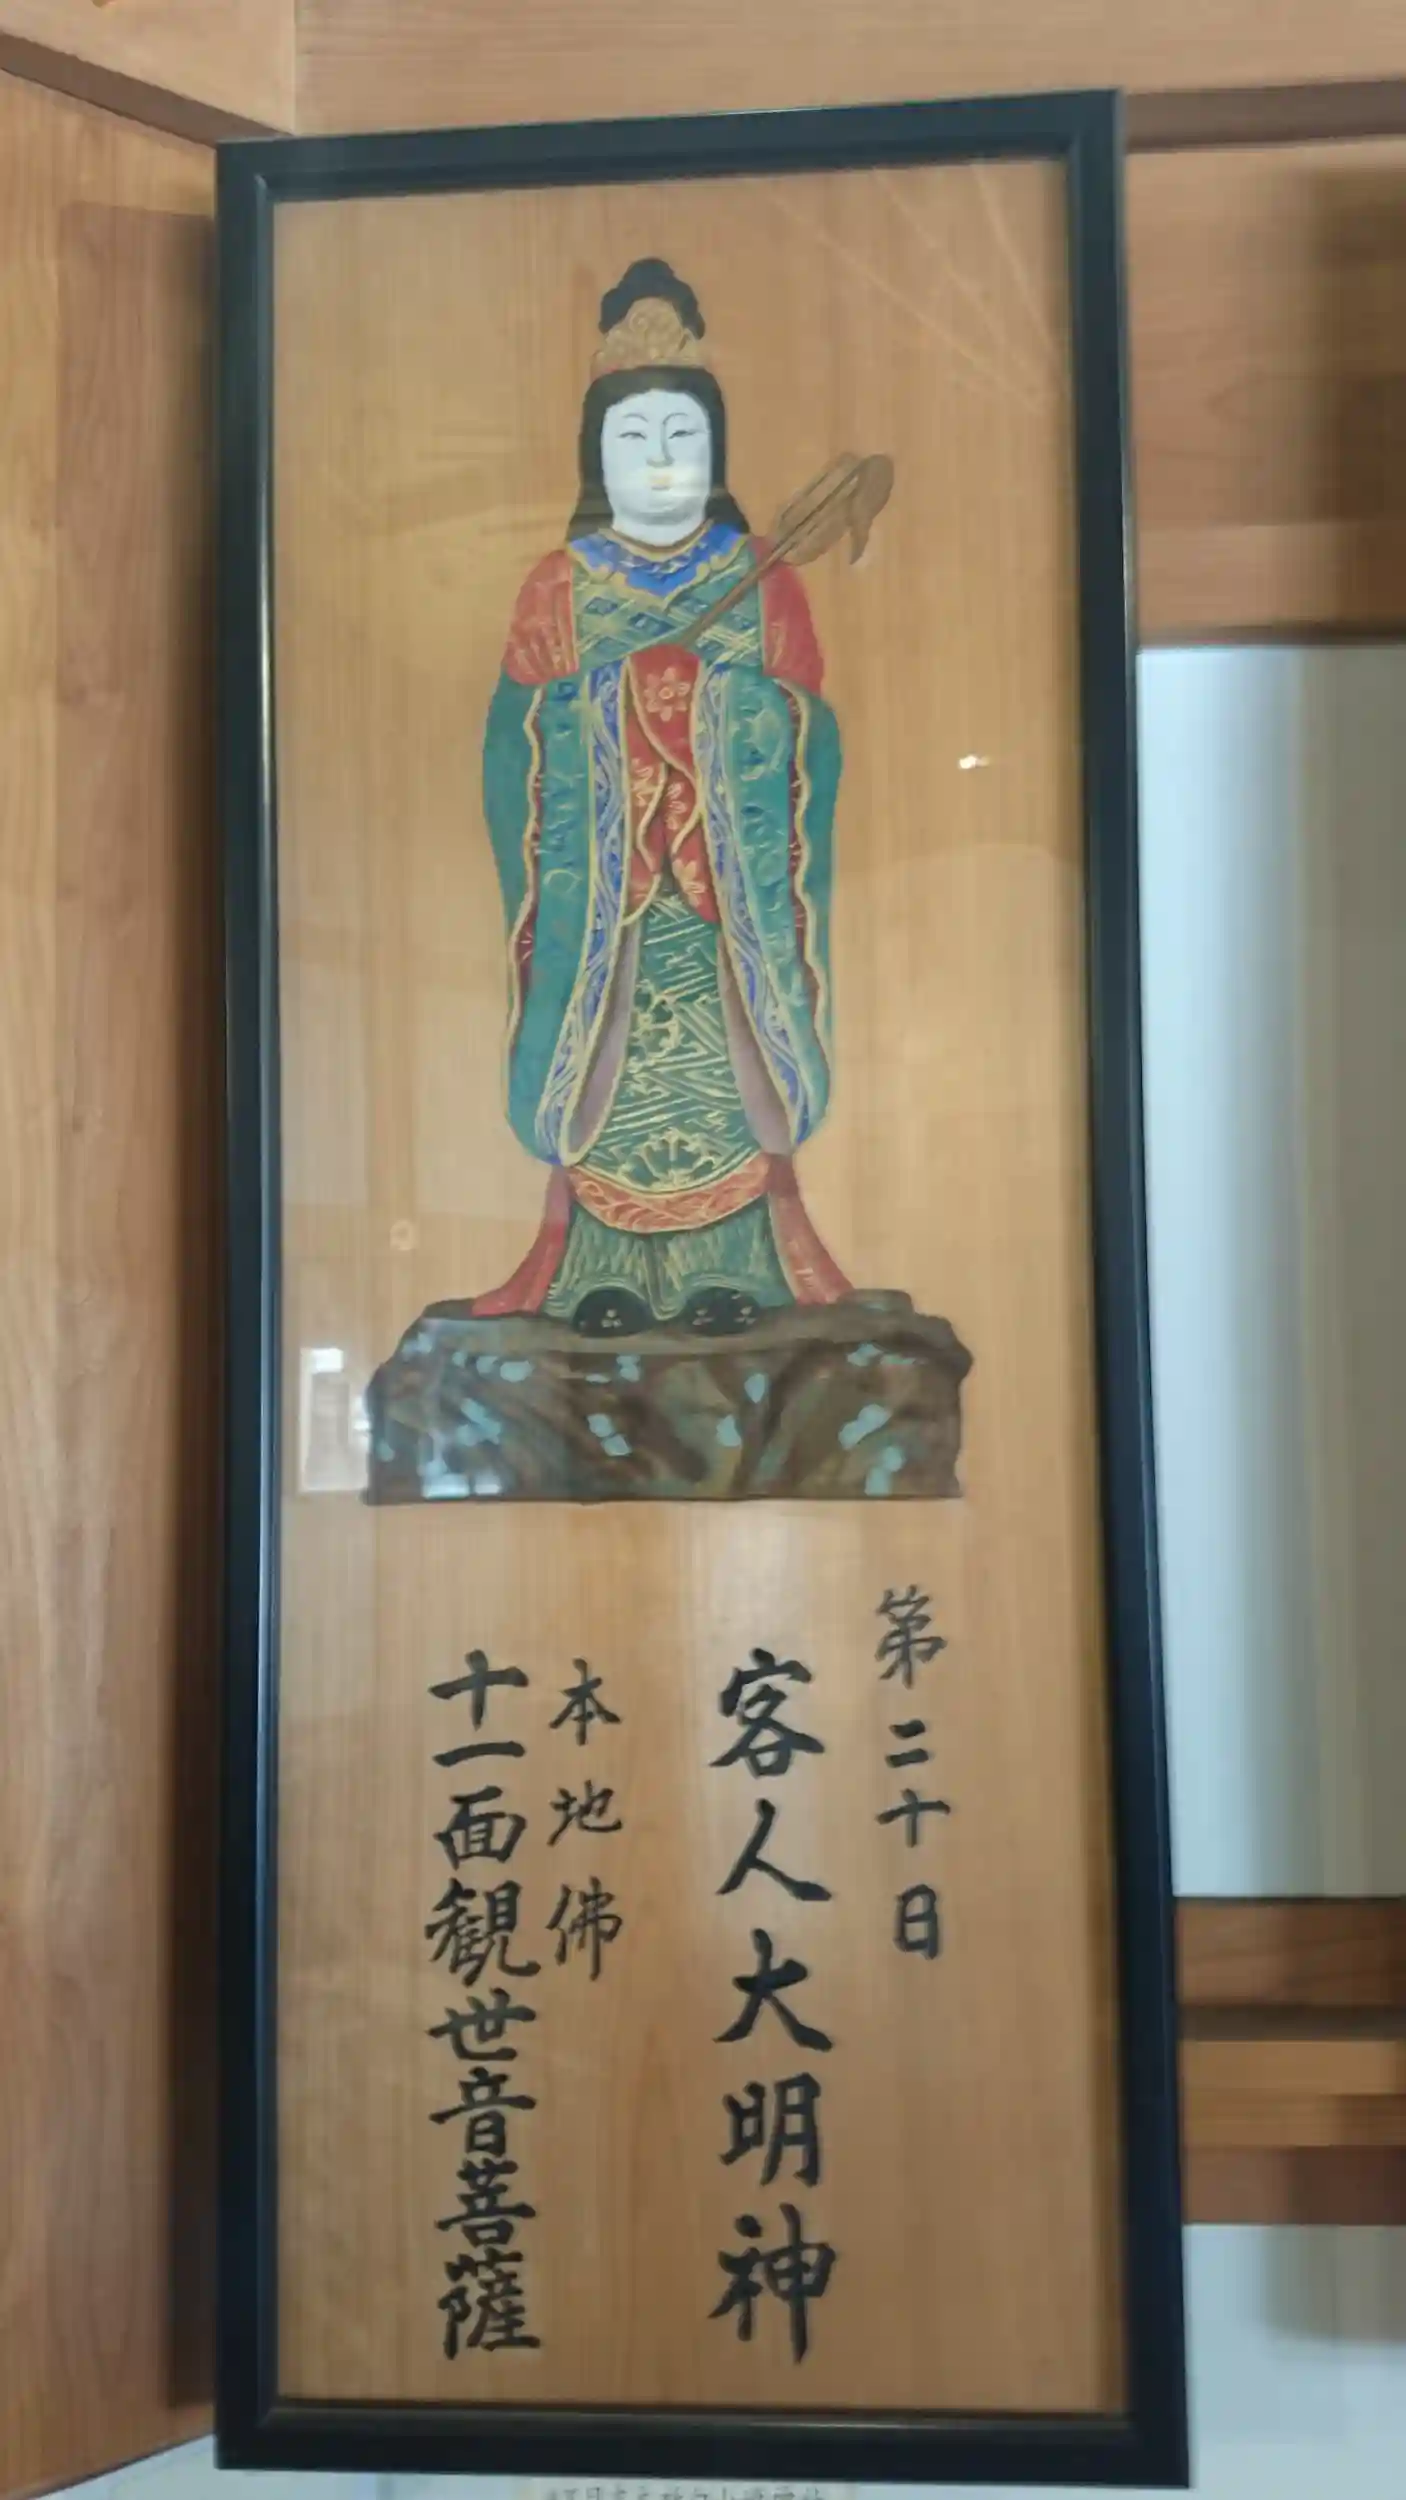 第二十日
客人大明神
本地佛
十一面観世音菩薩